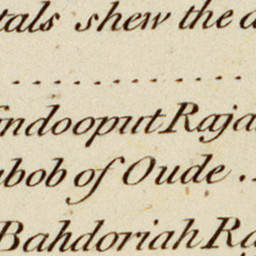 tals shew the a
ndooput Raja
abob of Oude .
Bahdoriah Ra